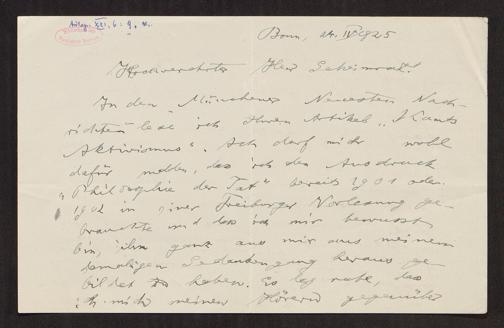 Bonn, 24. IV 1925
Hochverehrter Herr Geheimrat!
In den „Münchener Neuesten Nach-
richten" lese ich Ihren Artikel „Kants
Aktivismus". Ich darf mich wohl
dafür melden, das ich den Ausdruck
„Philosophie der Tat" bereits 1901 oder
1902 in einer Freiburger Vorlesung ge-
brauchte und das ich mir bewusst
bin, ihn ganz aus mir aus meinem
damaligen Gedankengang heraus ge-
bildet zu haben. Es lag nahe, das
ich mich meinen Hörern gegenüber